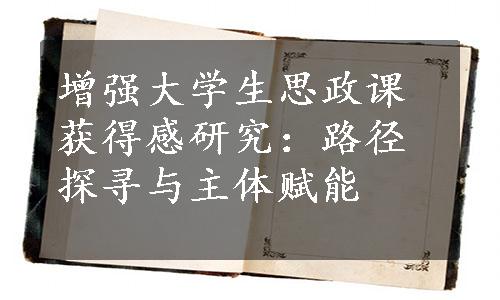 增强大学生思政课
获得感研究：路径
探寻与主体赋能